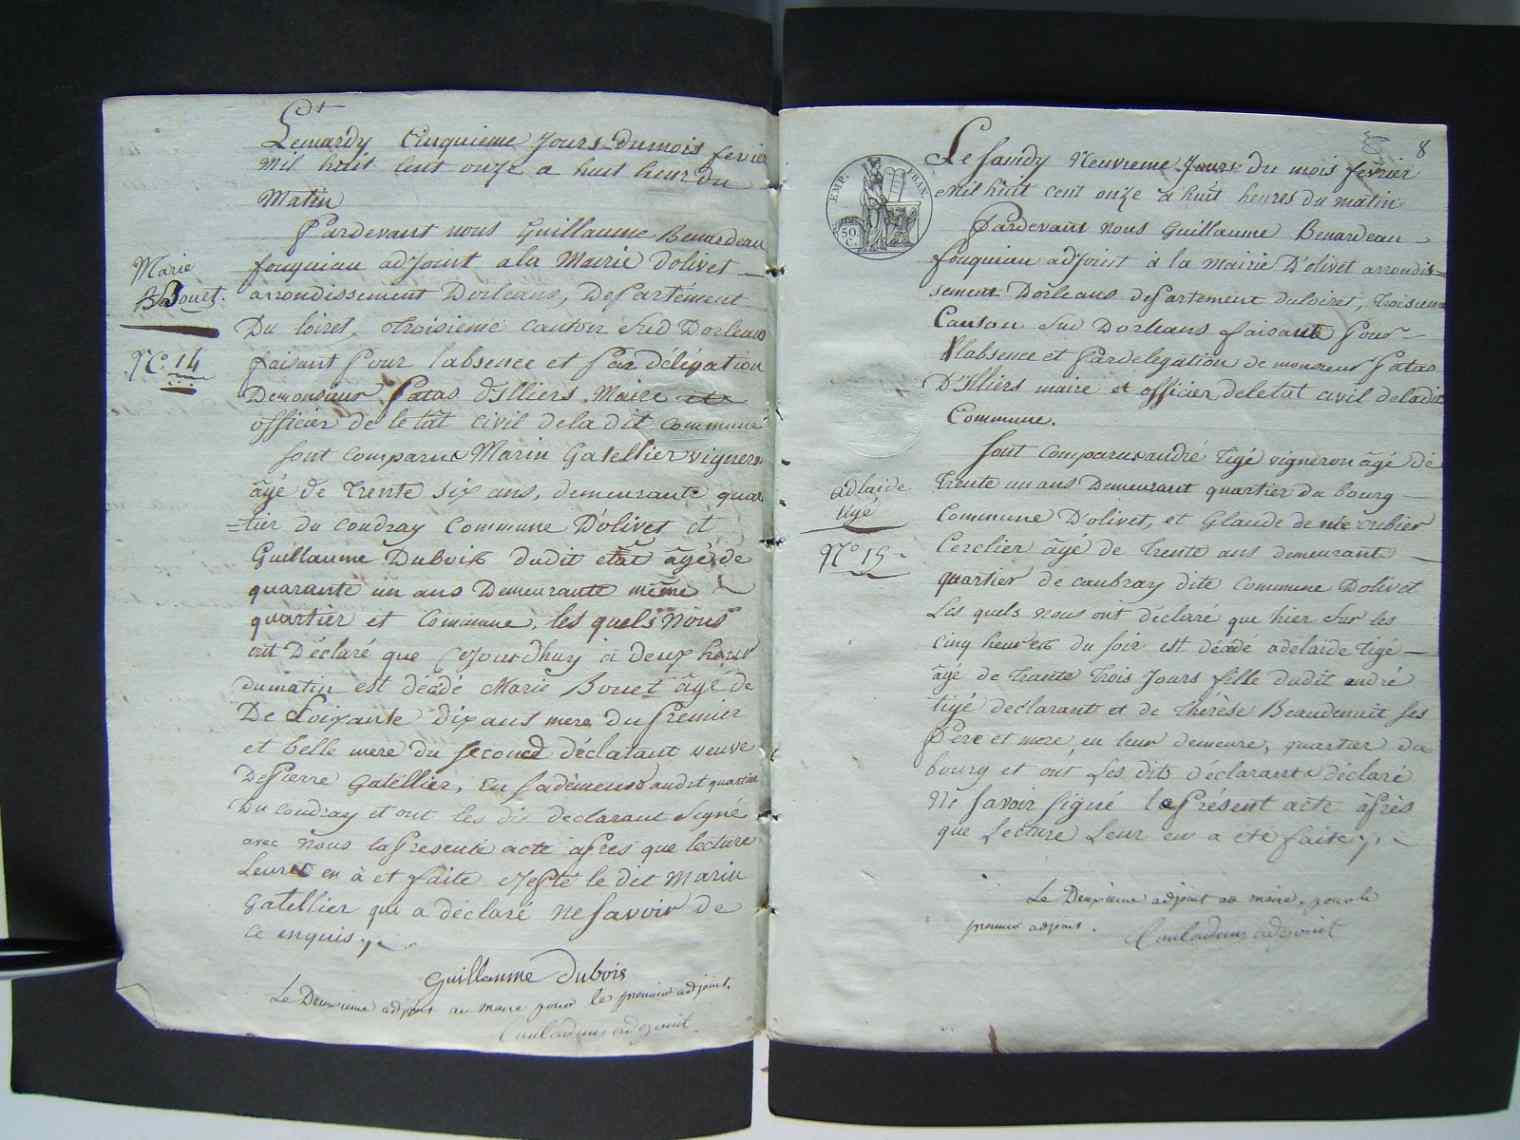 Marie
Bouet.
N.o 14
Lemardy Cinquieme Jours dumois fevrier
mil huit cent onze a huit heur du
Matin
Pardevant nous Guillaume Benardeau
fouqueau adjoint ala Mairie dolivet
arrondissement Dorleans, Departement
Du loiret, troisieme canton Sud Dorleans
faisant pour labsence et par délégation
Demonsieur Patas dilliers, Maire et
officier de letat civil deladit commune
Sont comparu Marin Gatellier vigneron
âgé de trente six ans, demeurante quar
=tier du coudray Commune D'olivet et
Guillaume Dubois dudit etat âgé de
quarante un ans Demeurante même
quartier et Commune, les quels nous
ont Déclaré que Cejourdhuy à deux heur
dumatin est décédé Marie Bouet âgé de
De Soixante dix ans mere du premier
et belle mere du second déclarant veuve
De Pierre Gatellier, en sademeure audit quartier
Du coudray et ont les dit declarant Signé
avec nous lapresente acte apres que lecture
Leurs en à et faite excepté le dit Marin
Gatellier qui a déclaré ne savoir de
ce enquis
Guillaume Dubois
Le Deuxieme adjoint au maire pour le premier adjoint.
adjoint
8
EMP. FRAN.
50 C.
adlaide
tigé
N.o 15
Le samdy Neuvieme Jours du mois fevrier
mil huit cent onze à huit heures du matin
Pardevant nous Guillaume Benardeau
fouqueau adjoint à la mairie D'olivet arrondis=
sement Dorleans departement duloiret, troisieme
Canton Sud Dorleans faisant pour
Labsence et Pardelegation de monsieur Patas
D'illiers maire et officier deletat civil deladit
Commune.
Sont comparus andré tigé vigneron âgé de
trente un ans Demeurant quartier du bourg
Commune D'olivet, et Glaude denie
Cerclier âgé de trente ans demeurant
quartier de caubray dite commune Dolivet
Les quels nous ont déclaré que hier sur les
cinq heures du soir est décédé adelaide tigé
âgé de trante trois Jours fille dudit andré
tigé declarant et de thérèse Beaudenuit ses
Pere et mere, en leur demeure, quartier du
bourg et ont Les dits déclarant déclaré
Ne savoir signé le présent acte après
que Lecture Leur en a été faite
Le Deuxieme adjoint au maire, pour le
premier adjoint. adjoint